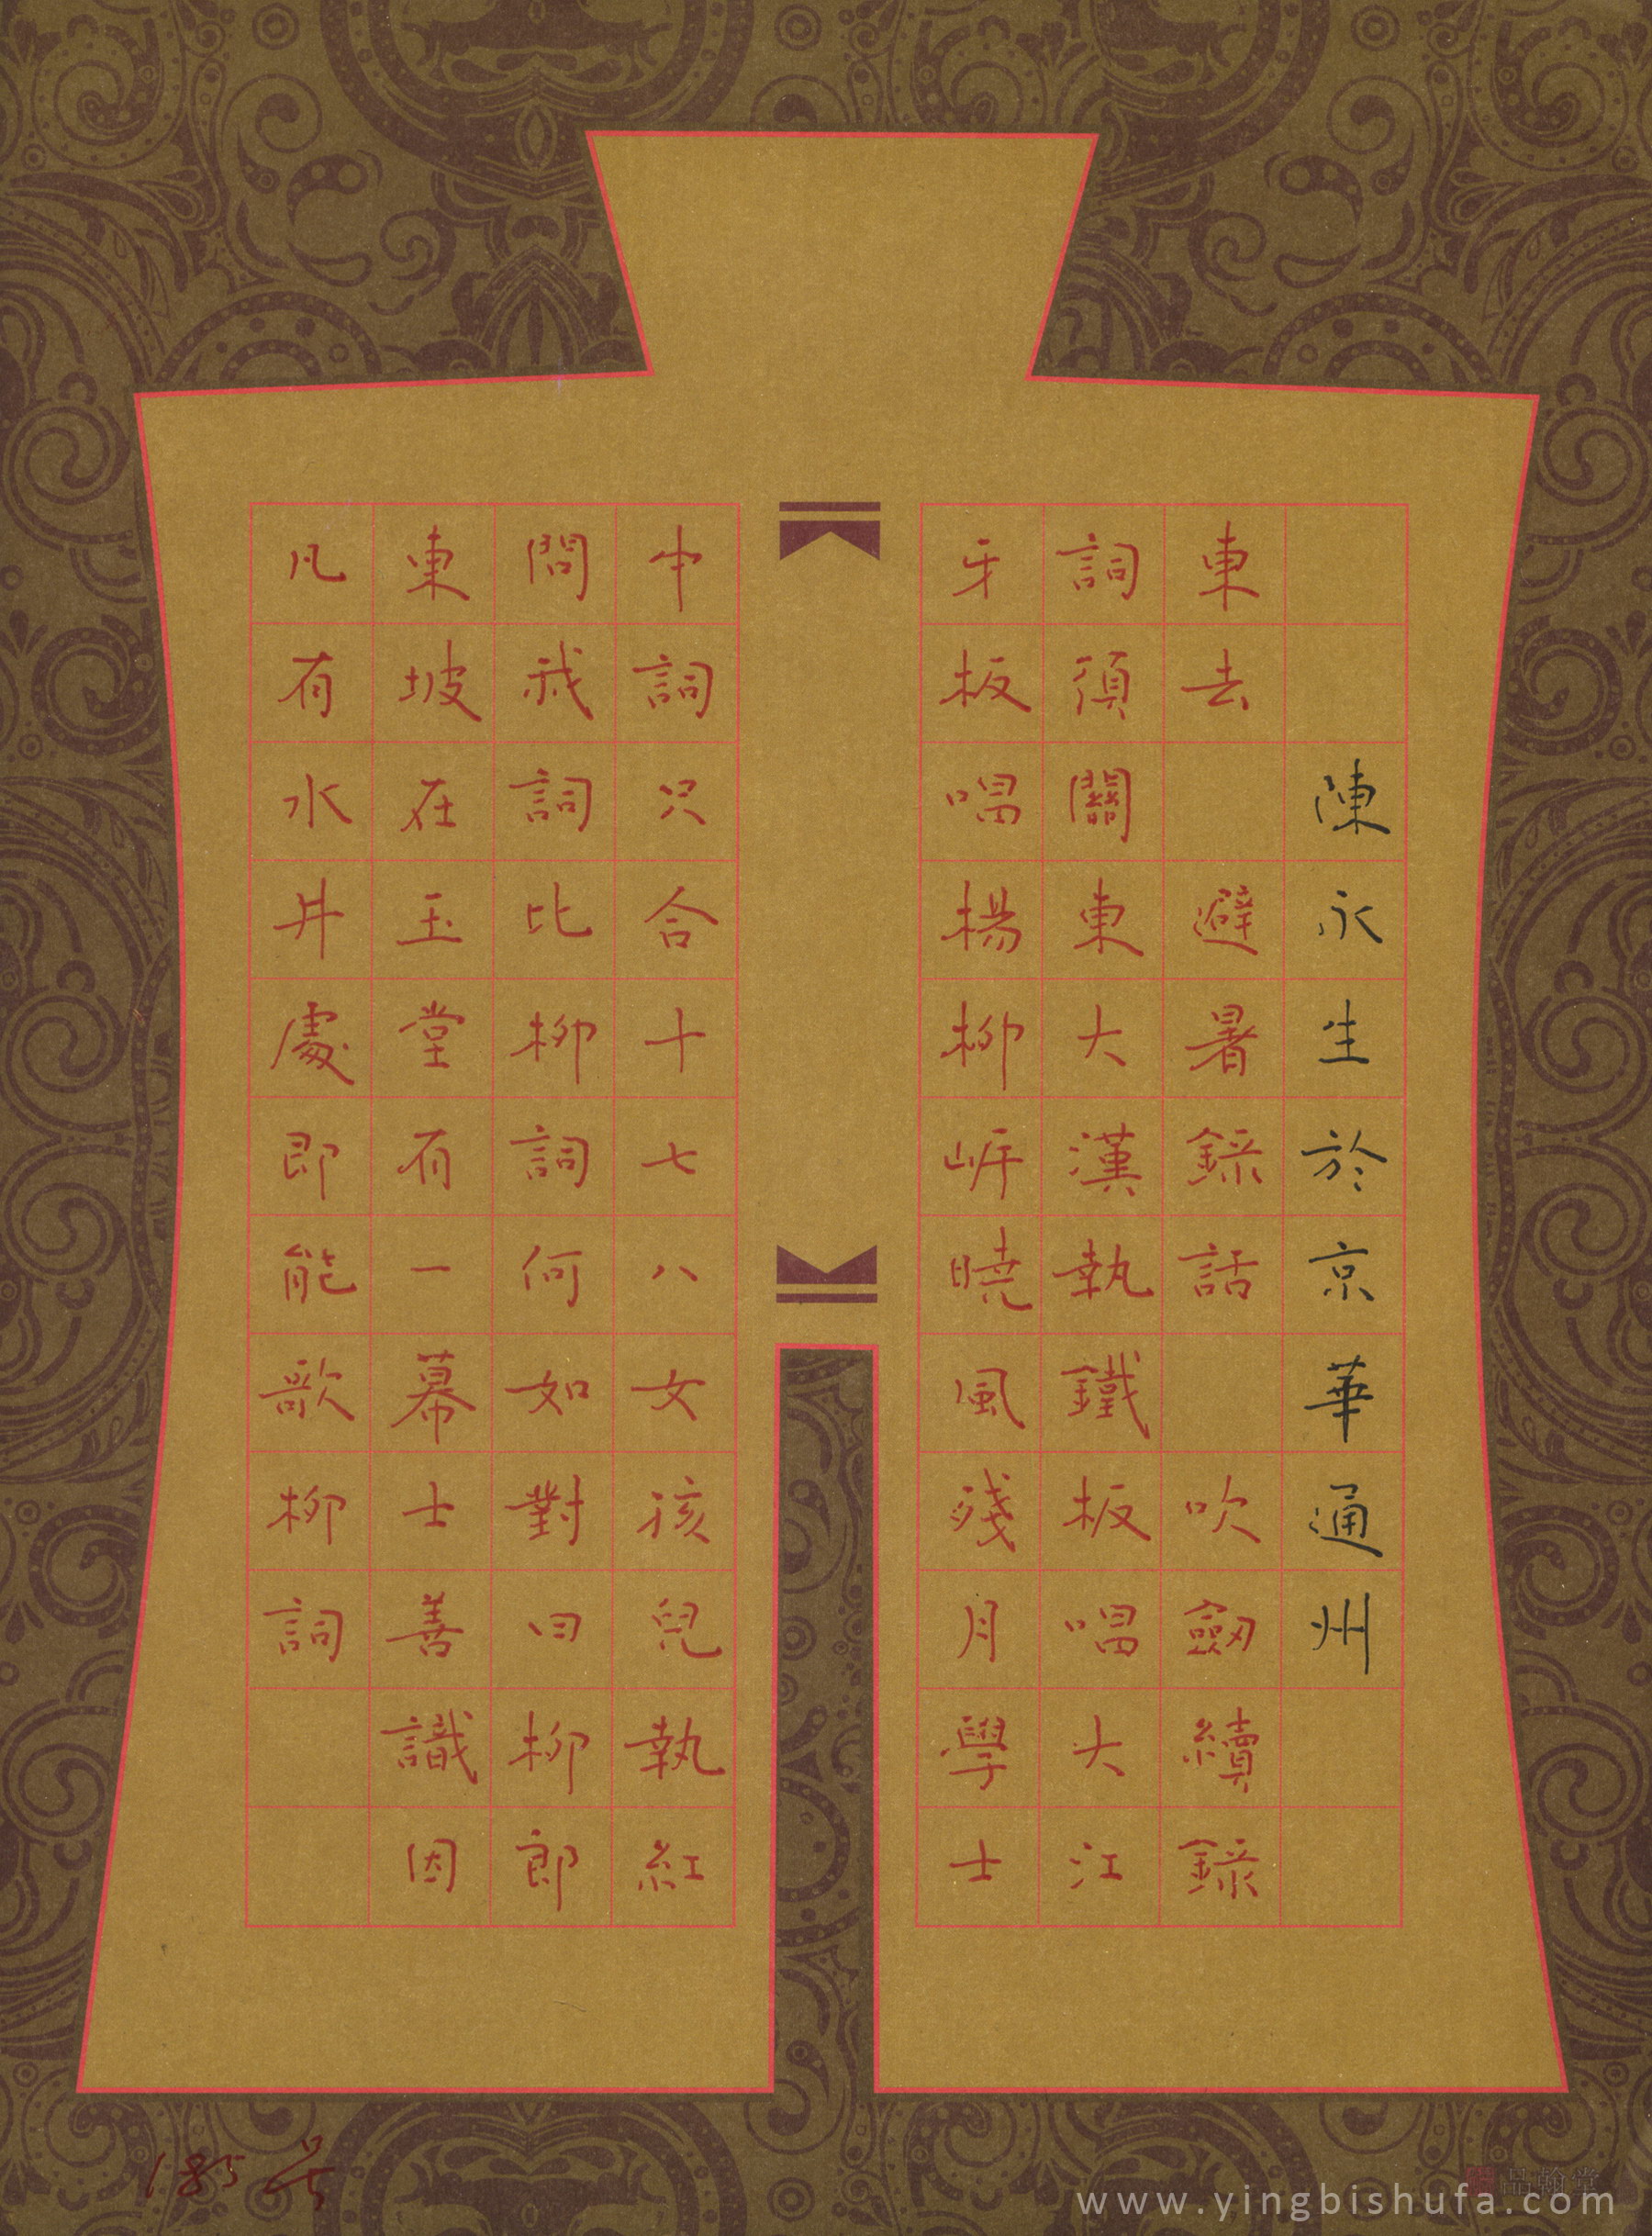 凡有水井處即能歌柳詞
東坡在玉堂有一幕士善識因
問我詞比柳詞何如對曰柳郎
中詞只合十七八女孩兒執紅
牙板唱楊柳岸曉風殘月學士
詞須關東大漢執鐵板唱大江
東去 避暑錄話 吹劒續錄
陳永生於京華通州
185
品翰堂
www.yingbishufa.com